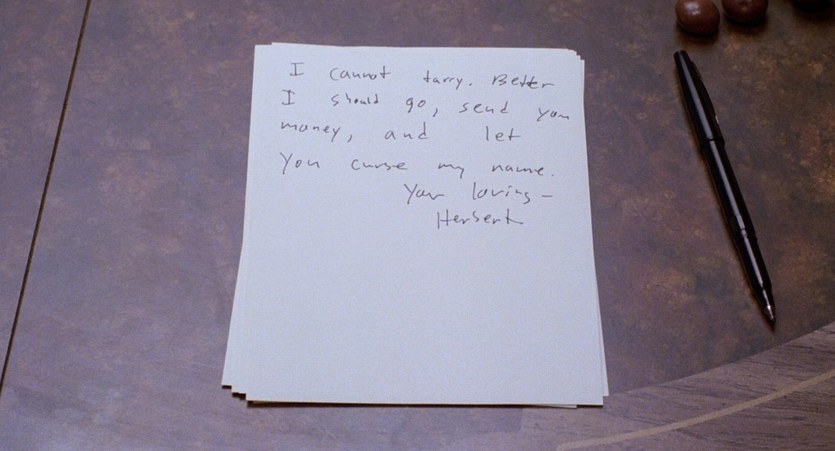 I cannot tarry. Better
I should go, send you
money, and let
you curse my name.
Your loving –
Herbert